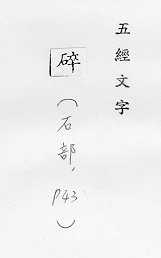 五經文字
碎
(石部,
P43)